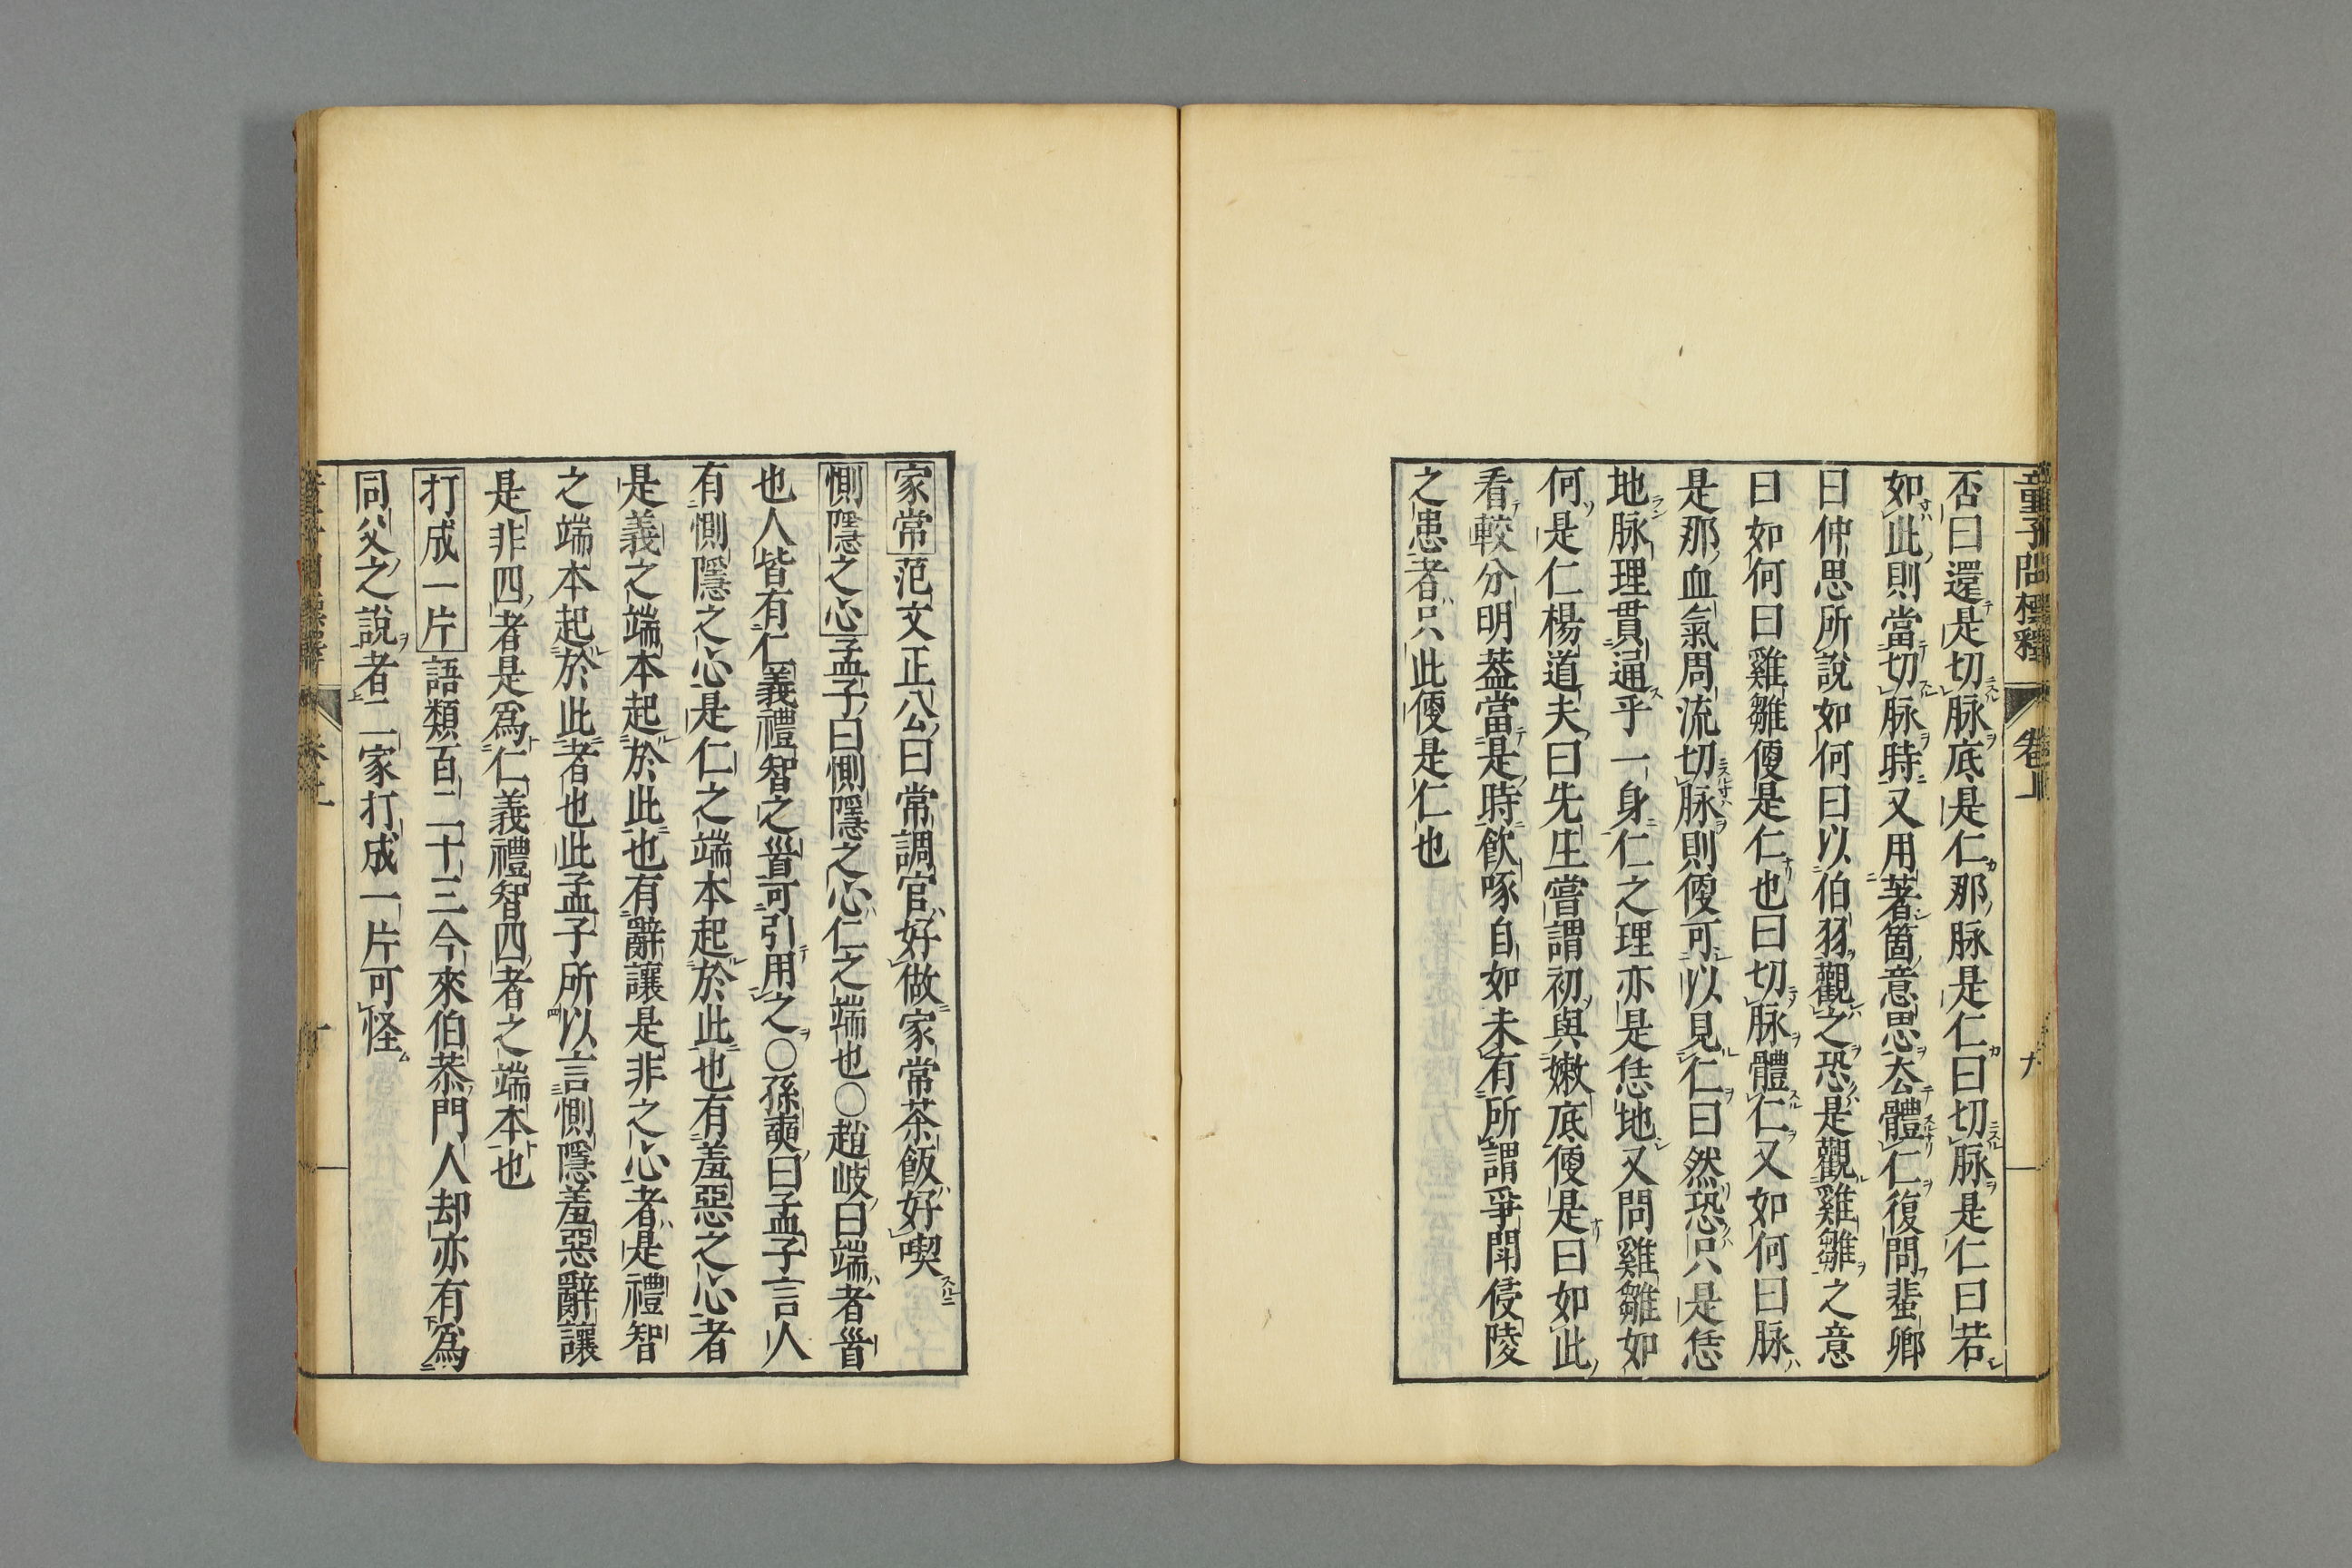 童子問標釋 卷上 九
否曰還是切脉底是仁那脉是仁曰切脉是仁曰若
如此則當切脉時又用著箇意思去體仁復問蜚卿
曰仲思所說如何曰以伯羽觀之恐是觀雞雛之意
曰如何曰雞雛便是仁也曰切脉體仁又如何曰脉
是那血氣周流切脉則便可以見仁曰然恐只是恁
地脉理貫通乎一身仁之理亦是恁地又問雞雛如
何是仁楊道夫曰先生嘗謂初與嫩底便是曰如此
看較分明蓋當是時飲啄自如未有所謂爭鬪侵陵
之患者只此便是仁也
家常范文正公曰常調官好做家常茶飯好喫
惻隱之心孟子曰惻隱之心仁之端也○趙岐曰端者首
也人皆有仁義禮智之首可引用之○孫奭曰孟子言人
有惻隱之心是仁之端本起於此也有羞惡之心者
是義之端本起於此也有辭讓是非之心者是禮智
之端本起於此者也此孟子所以言惻隱羞惡辭讓
是非四者是爲仁義禮智四者之端本也
打成一片語類百二十三今來伯恭門人却亦有爲
同父之說者二家打成一片可怪